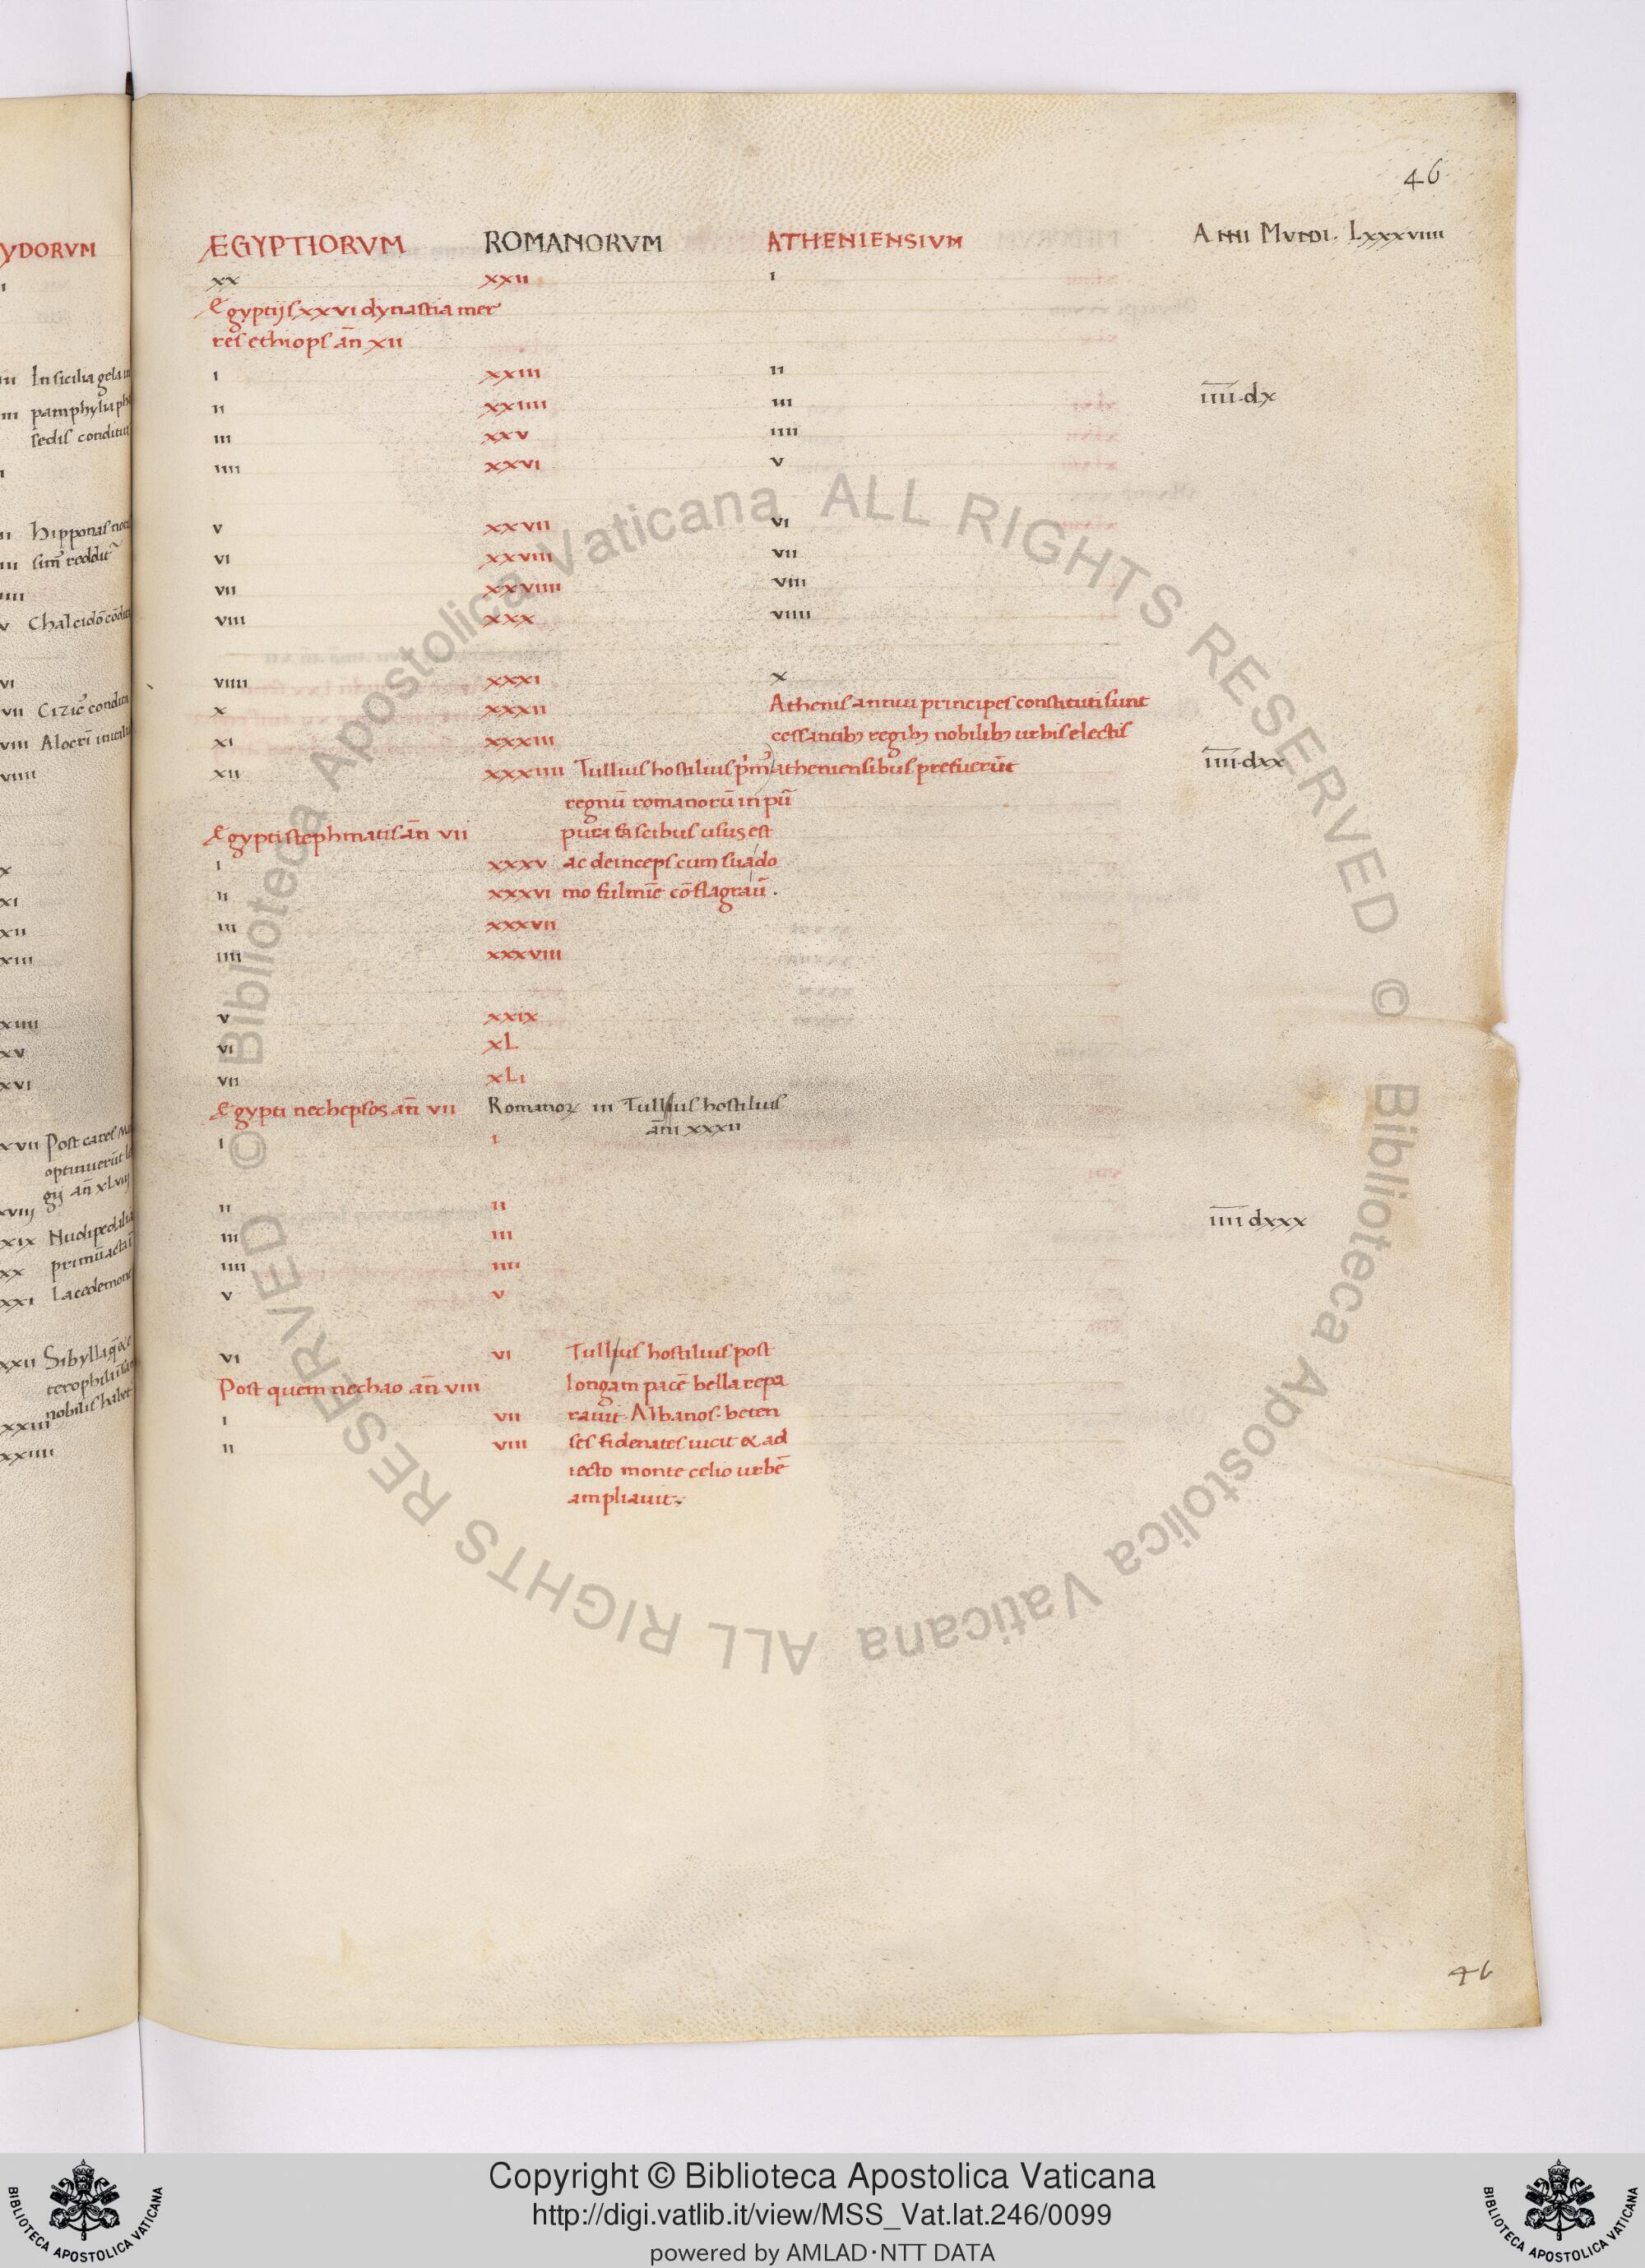 46
YDORVM
ÆGYPTIORVM ROMANORVM ATHENIENSIVM ANNI MVNDI. LXXXVIIII
I XX XXII I
Ægyptijs xxvi dynastia mer
res ethiops an̄ xii
III In sicilia gela I XXIII II
IIII pamphylia II XXIIII III I̅I̅I̅I̅.dx
sedis condit III XXV IIII
I IIII XXVI V
II Hipponas V XXVII VI
III sim̄ reddit VI XXVIII VII
IIII VII XXVIIII VIII
V Chalcidō VIII XXX VIIII
VI VIIII XXXI X
VII Cizic̄ condit X XXXII Athenis annui principes constituti sunt
VIII Alocri XI XXXIII cessantib; regib; nobilib; urbis electis
VIIII XII XXXIIII Tullius hostilius p̄m̄ atheniensibus prefuerūt I̅I̅I̅I̅.dxx
regnū romanorū in pū
Ægypti stephinatis an̄ vii pura fascibus usus est
X I XXXV ac deinceps cum sua do
XI II XXXVI mo fulmīe cōflagrau̅.
XII III XXXVII
XIII IIII XXXVIII
XIIII V XXIX
XV VI XL
XVI VII XLI
Ægypti nechepsos an̄ vii Romanoꝝ iii Tullius hostilius
ān̄i xxxii
XVII Post cares I I
optinuerūt
gij an̄ xlviij
XVIIJ II II I̅I̅I̅I̅ dxxx
XIX Nudipedalia III III
XX primū acta IIII IIII
XXI Lacedemone V V
XXII Sibylla VI VI Tullius hostilius post
terophila
Post quem nechao an̄ viii longam pacē bella repa
nobilis habet
XXIII I VII rauit. Albanos. beien
XXIIII II VIII ses fidenates uicit & ad
iecto monte celio urbē
ampliauit.
46
© Biblioteca Apostolica Vaticana ALL RIGHTS RESERVED
© Biblioteca Apostolica Vaticana ALL RIGHTS RESERVED
Copyright © Biblioteca Apostolica Vaticana
http://digi.vatlib.it/view/MSS_Vat.lat.246/0099
powered by AMLAD·NTT DATA
BIBLIOTECA APOSTOLICA VATICANA
BIBLIOTECA APOSTOLICA VATICANA